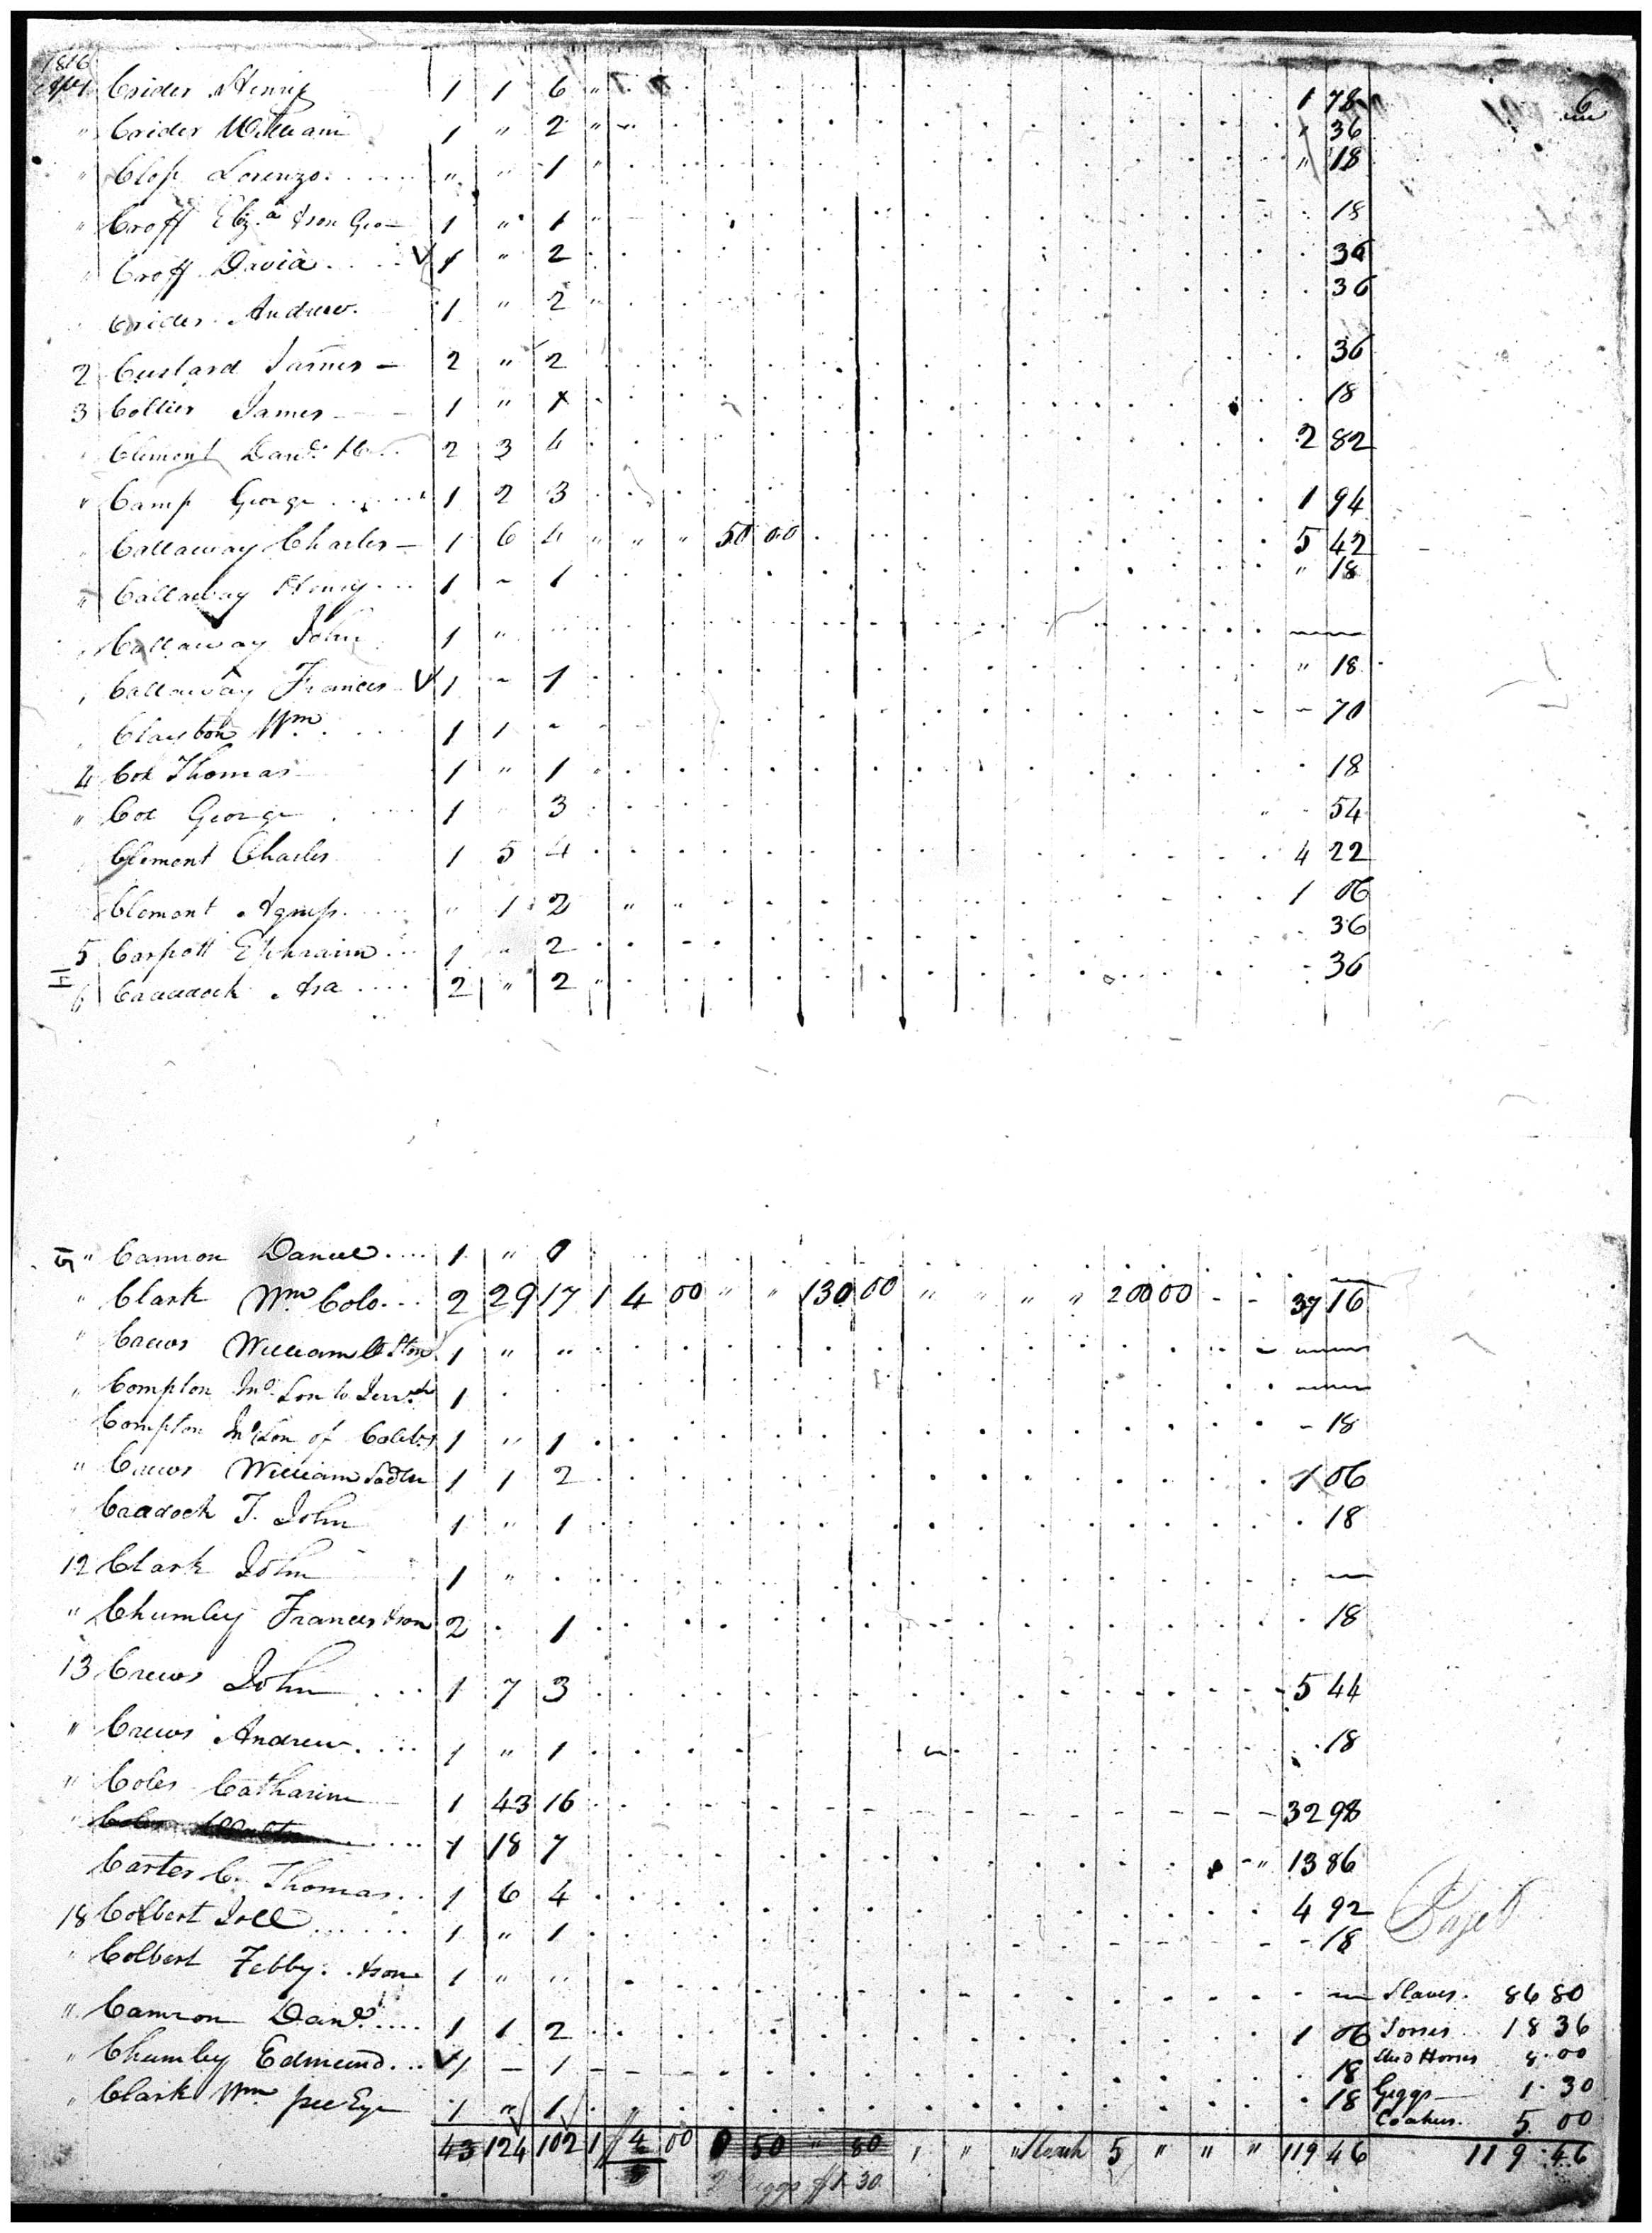 1816
6
Apl 1 Crider Henry 1 1 6 " 1 78
" Crider William 1 " 2 " " 36
" Clop Lorenzo " " 1 " " 18
" Croff Eliz.a & son Geo 1 " 1 " 18
" Croff David V 1 " 2 36
" Crider Andrew 1 " 2 " 36
2 Custard James 2 " 2 36
3 Collier James 1 " 1 18
" Clement Dan.l 2 3 4 2 82
" Camp George 1 2 3 1 94
" Callaway Charles 1 6 4 " " " 50 00 5 42
" Callaway Henry 1 ~ 1 " 18
" Callaway John 1 "
" Callaway Frances V 1 ~ 1 " 18
" Clayton Wm 1 1 - - 70
4 Cox Thomas 1 " 1 " 18
" Cox George 1 3 54
" Clement Charles 1 5 4 4 22
Clement Agness " 1 2 " " 1 06
5 Carpott Ephraim 1 " 2 36
6 Craddock Asa 2 " 2 " 36
" Camron Daniel 1 " 0
" Clark Wm Colo. 2 29 17 1 4 00 " " 130 00 " " " " 200 00 - - 37 16
" Crews William 1 " "
" Compton Jno. Son to 1
Compton Jno Son of Caleb 1 " 1 - 18
" Crews William Sadler 1 1 2 1 06
" Craddock T. John 1 " 1 18
12 Clark John 1 "
" Chumley Frances & son 2 1 18
13 Crews John 1 7 3 5 44
" Crews Andrew 1 " 1 18
" Coles Catharine 1 43 16 32 98
" Coles 1 18 7 13 86
Carter C. Thomas 1 6 4 4 92
18 Colbert Joel 1 " 1 18
" Colbert Febby & son 1 " "
Slaves 86 80
" Camron Dan.l 1 1 2 1 06
Horses 18 36
" Chumley Edmund V 1 - 1 18
Stud Horses 4.00
" Clark Wm pee Eye 1 " 1 18
Giggs 1.30
Coaches 5 00
43 124 102 1 4 00 50 " 80 " " " Coach 5 " " " 119 46
119.46
2 Giggs $1.30